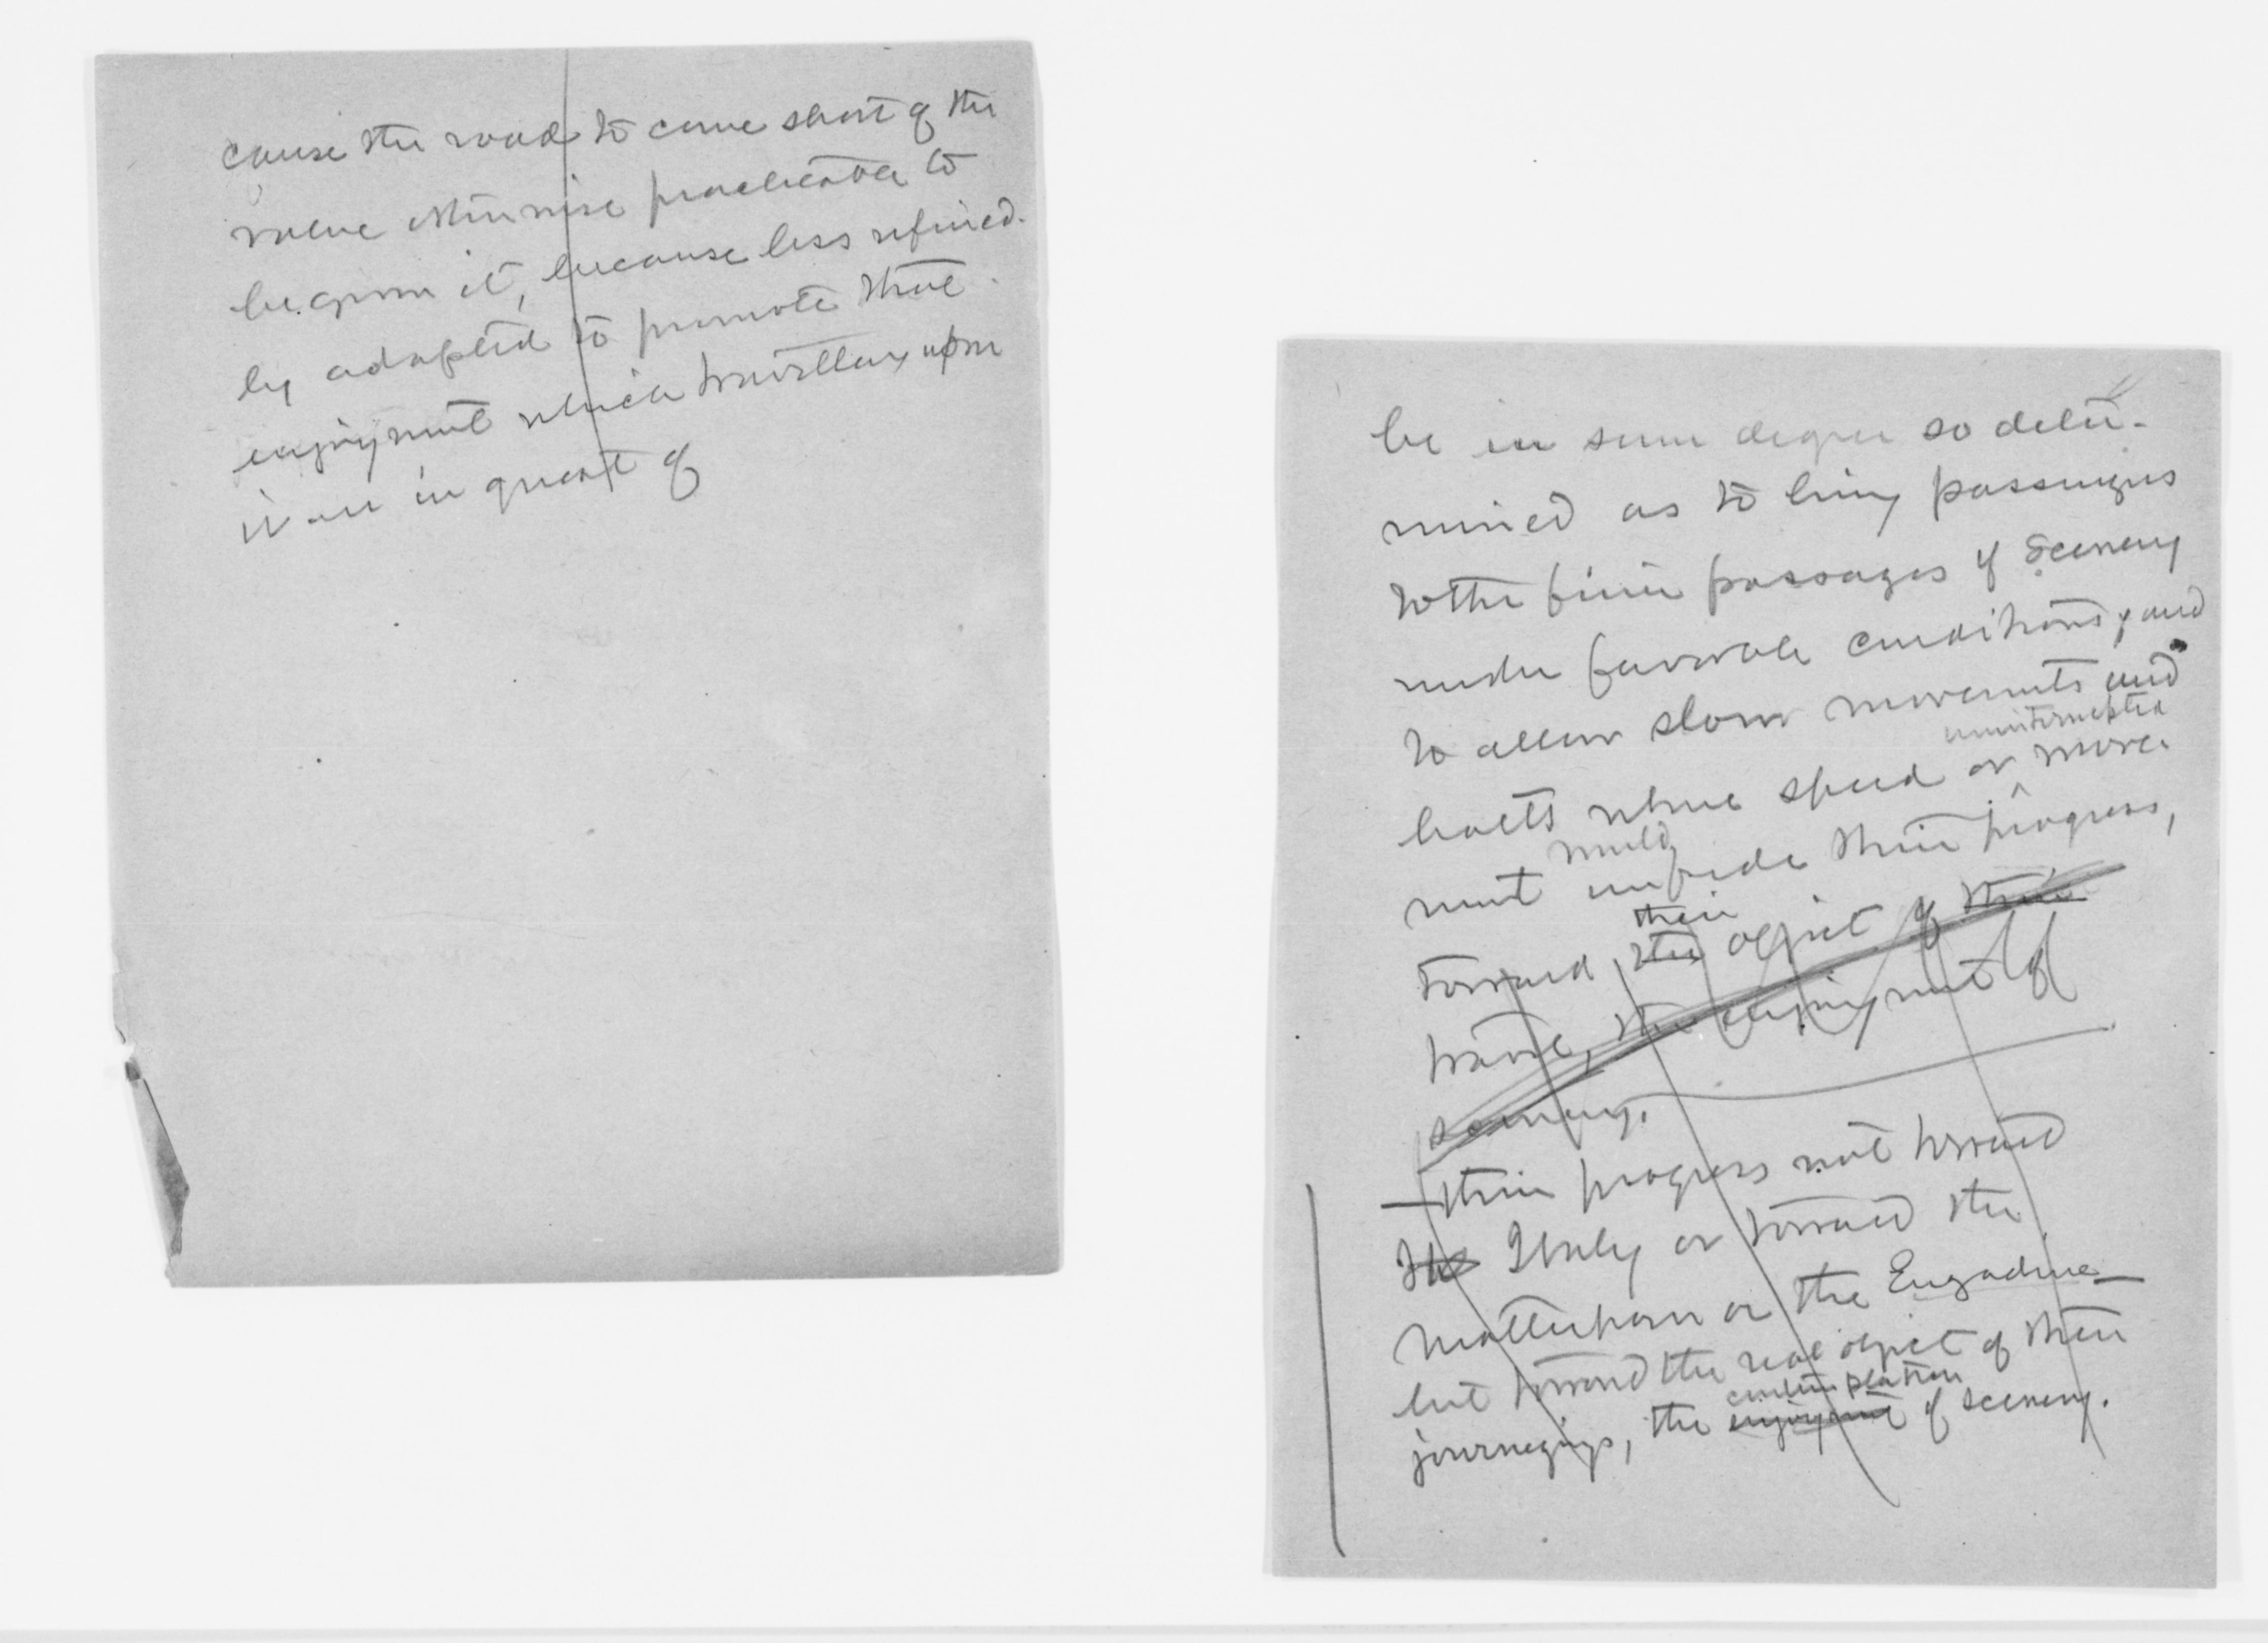 cause the road to come short of the
value otherwise practicable to
be given it, because less refined-
ly adapted to promote that
enjoyment which travellers upon
it are in quest of
be in some degree so deter-
mined as to bring passengers
to the finer passages of scenery
under favorable conditions, and
to allow slow movements and
uninterrupted
halts where speed or move-
would
ment impede their progress,
their
toward the object of their
travel, the enjoyment of
scenery.
— their progress not toward
the Italy or toward the
Matterhorn or the Engadine —
but toward the real object of their
contemplation
journeyings, the enjoyment of scenery.